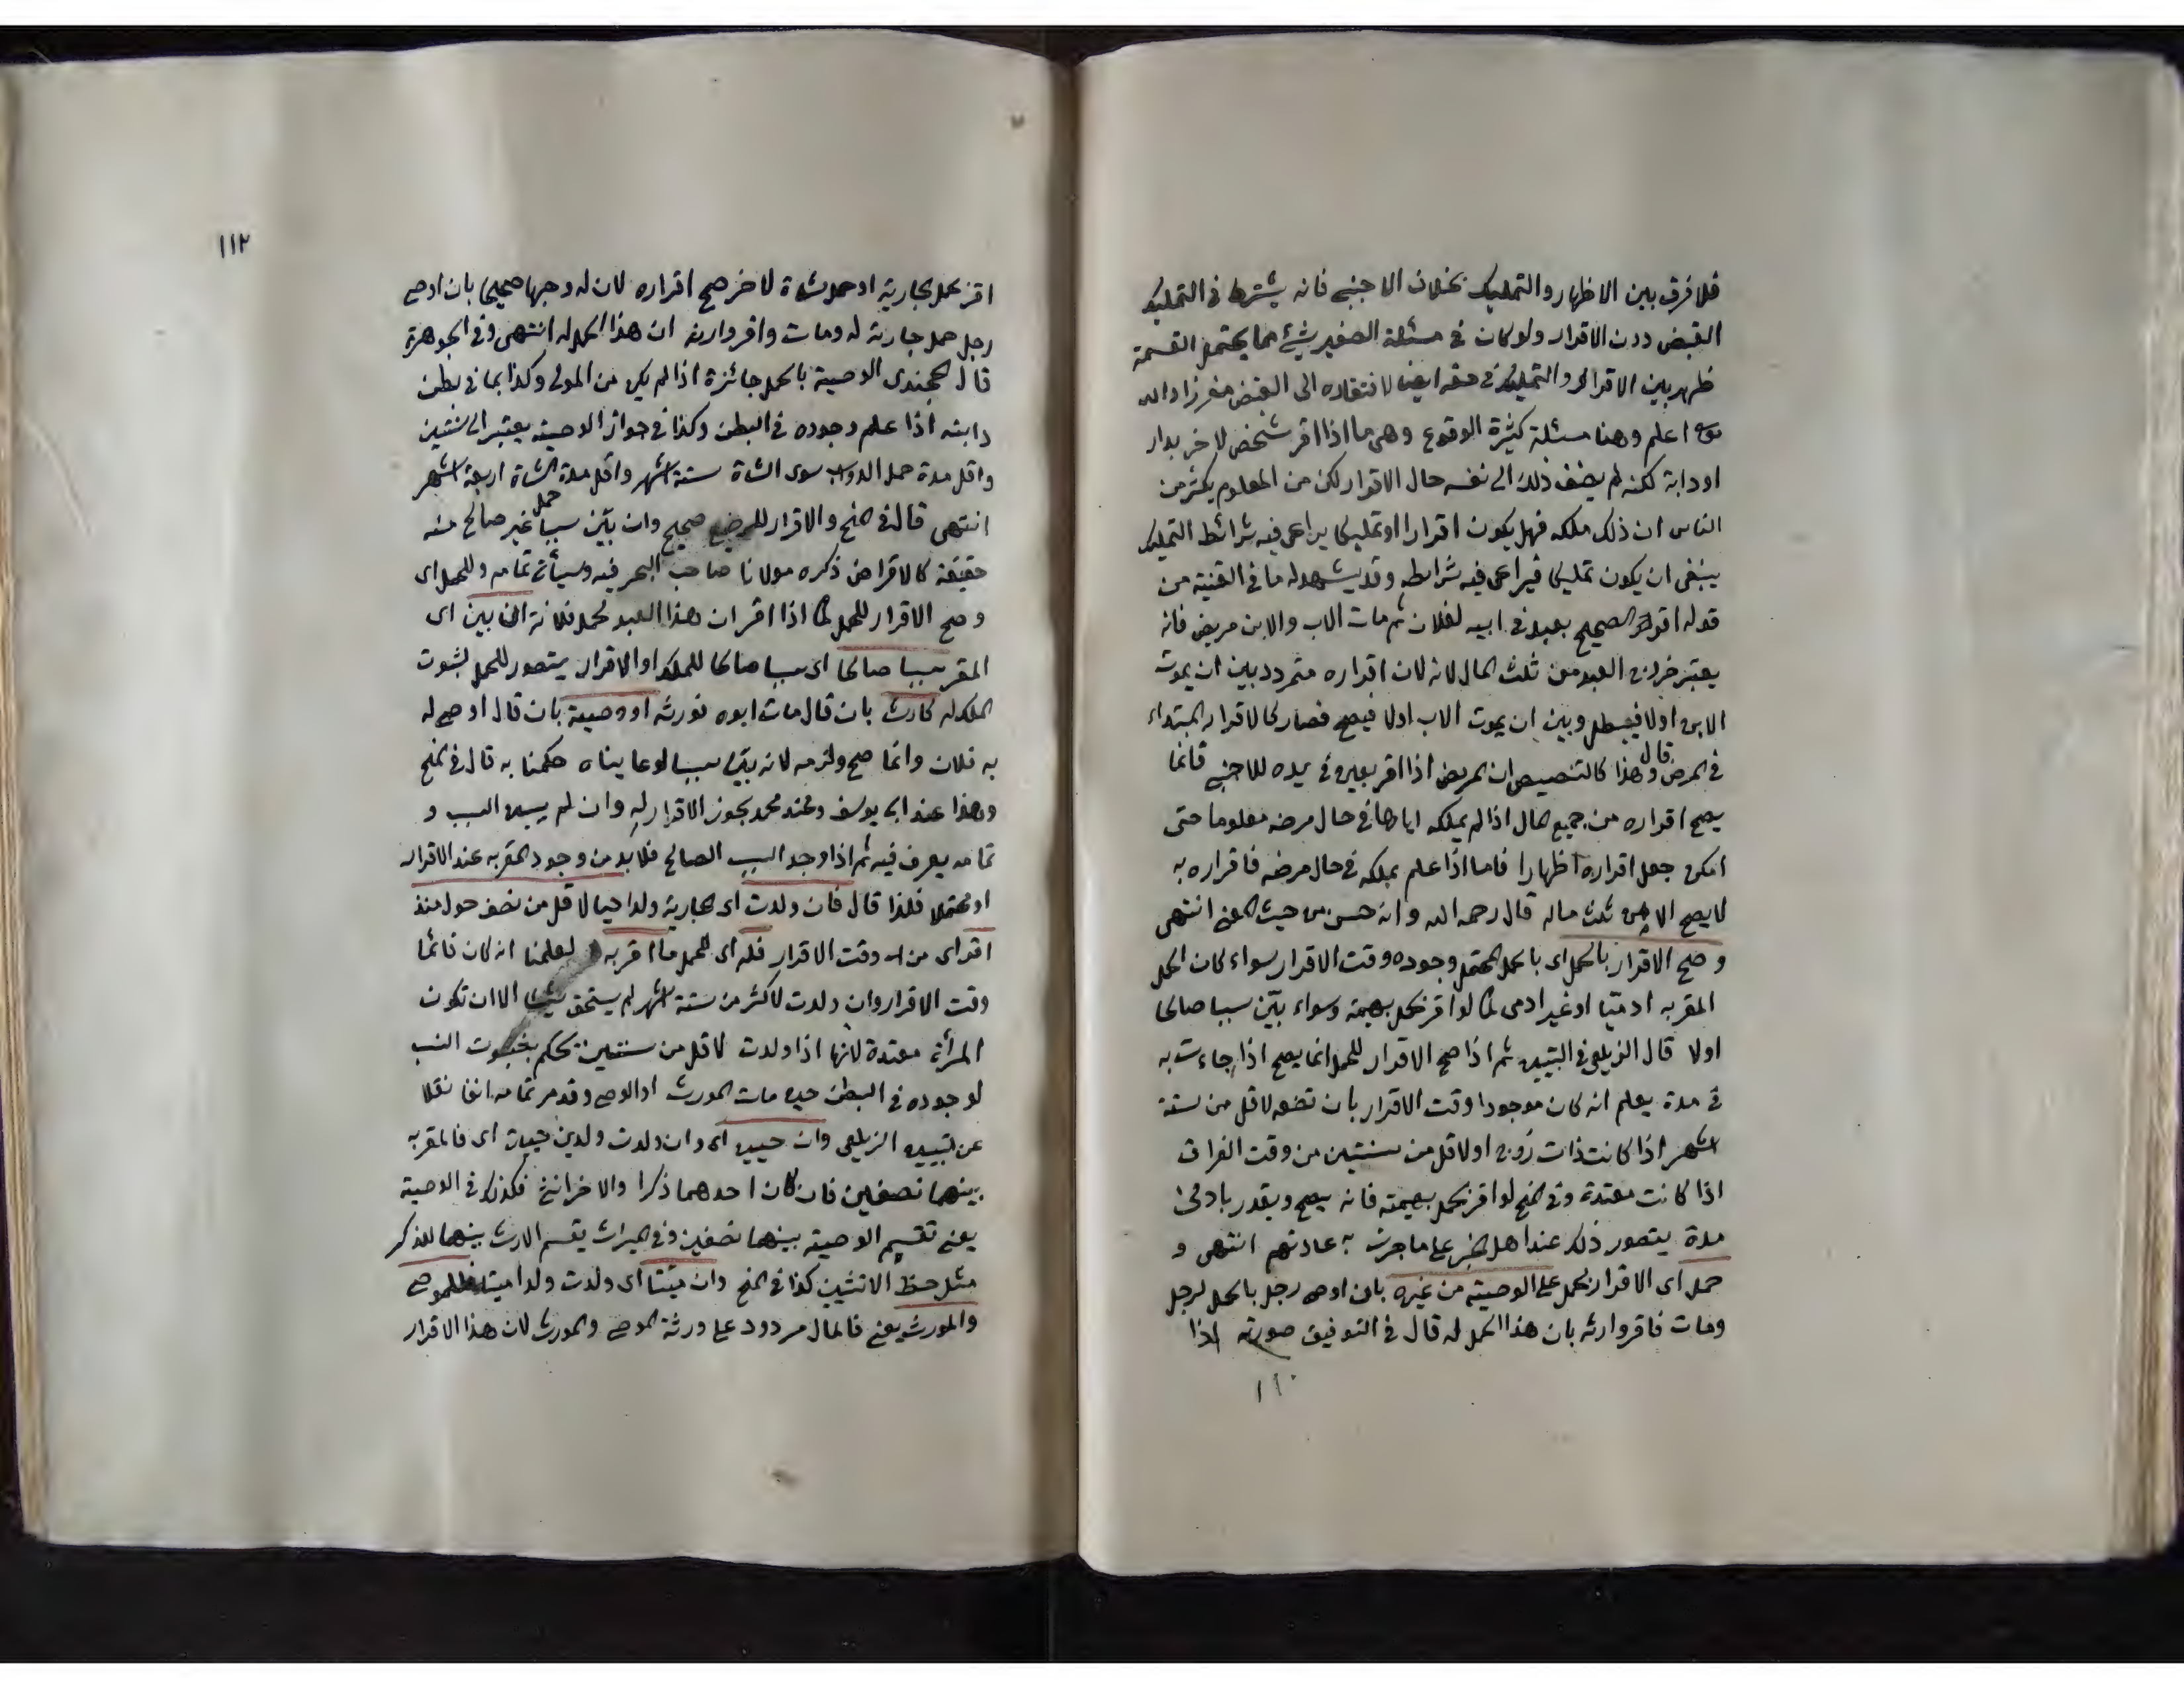 فلا فرق بين الاظهار والتمليك بخلاف الاجنبي فانه يشترط في التمليك
القبض دون الاقرار ولو كان في مسئلة الصغير شئ مما يحتمل القسمة
ظهر بين الاقرار والتمليك في حقه ايضا لافتقاره الى القبض مفرزا والله
اعلم وهنا مسئلة كثيرة الوقوع وهي ما اذا اقر شخص لاخر بدار
او دابة لكنه لم يضف ذلك الى نفسه حال الاقرار لكن من المعلوم بكثير من
الناس ان ذلك ملكه فهل يكون اقرارا او تمليكا يراعى فيه شرائط التمليك
ينبغي ان يكون تمليكا فيراعى فيه شرائطه وقد يشهد له ما في القنية من
قوله اقر الصحيح بعبد في ابيه لفلان ثم مات الاب والابن مريض فانه
يعتبر خروج العبد من ثلث المال لانه لان اقراره متردد بين ان يموت
الابن اولا فيبطل وبين ان يموت الاب اولا فيصح فصار كالاقرار المبتداء
في المرض قال وهذا كالتنصيص ان المريض اذا اقر بعين في يده للاجنبي فانما
يصح اقراره من جميع المال اذا لم يملكه اياها في حال مرضه معلوما حتى
امكن جعل اقراره اظهارا فاما اذا علم تملكه في حال مرضه فاقراره به
لا يصح الا من ثلث ماله قال رحمه الله وانه حسن من حيث المعنى انتهى
و صح الاقرار بالحمل اى بالحمل المحتمل وجوده وقت الاقرار سواء كان الحمل
المقر به ادميا او غير ادمى كما لو اقر بحمل بهيمة وسواء بيّن سببا صالحا
اولا قال الزيلعي في التبيين ثم اذا صح الاقرار للحمل انما يصح اذا جاءت به
في مدة يعلم انه كان موجودا وقت الاقرار بان تضعه لاقل من ستة
اشهر اذا كانت ذات زوج او لاقل من سنتين من وقت الفراق
اذا كانت معتدة وفي المنح لو اقر بحمل بهيمته فانه يصح ويقدر بادنى
مدة يتصور ذلك عند اهل الخبر على ما جرت به عادتهم انتهى و
حمل اى الاقرار بالحمل على الوصية من غيره بان اوصى رجل بالحمل لرجل
ومات فاقر وارثه بان هذا الحمل له قال في التوفيق صورته اذا
١١٠
١١٢
اقر بحمل جارية او حمل شاة لاخر صح اقراره لان له وجها صحيحا بان اوصى
رجل حمل جارية له ومات واقر وارثه ان هذا الحمل له انتهى وفي الجوهرة
قال الخجندى الوصية بالحمل جائزة اذا لم يكن من المولى وكذا بما في بطن
دابته اذا علم وجوده في البطن وكذا في جواز الوصية يعتبر الى سنتين
واقل مدة حمل الدواب سوى الشاة ستة اشهر واقل مدة حمل الشاة اربعة اشهر
انتهى قال في المنح والاقرار للرضيع صحيح وان بيّن سببا غير صالح منه
حقيقة كالاقراض ذكره مولانا صاحب البحر فيه وسيأتى تمامه وللحمل اى
و صح الاقرار للحمل كما اذا اقر ان هذا العبد لحمل فلانة ان بين اى
المقر سببا صالحا اى سببا صالحا للملك او الاقرار يتصور للحمل لثبوت
الملك له كالارث بان قال مات ابوه فورثه او وصية بان قال اوصى له
به فلان وانما صح ولزمه لانه بيّن سببا لو عايناه حكمنا به قال في المنح
وهذا عند ابى يوسف وعند محمد يجوز الاقرار له وان لم يبين السبب و
تمامه يعرف فيه ثم اذا وجد السبب الصالح فلا بد من وجود المقر به عند الاقرار
او محتملا فلذا قال فان ولدت اى الجارية ولدا حيا لاقل من نصف حول منذ
اقر اى من وقت الاقرار فله اى للحمل ما اقر به لعلمنا انه كان قائما
وقت الاقرار وان ولدت لاكثر من ستة اشهر لم يستحق شيئا الا ان تكون
المرأة معتدة لانها اذا ولدت لاقل من سنتين يحكم بثبوت النسب
لوجوده في البطن حين مات المورث او الموصى وقد مر تمامه انفا نقلا
عن تبيين الزيلعي وان حيين اى وان ولدت ولدين حيين اى فالمقر به
بينهما نصفين فان كان احدهما ذكرا والاخر انثى فكذلك في الوصية
يعني تقسم الوصية بينهما نصفين وفي الميراث يقسم الارث بينهما للذكر
مثل حظ الانثيين كذا في المنح وان ميتا اى ولدت ولدا ميتا فللموصى
والمورث يعني فالمال مردود على ورثة الموصى والمورث لان هذا الاقرار